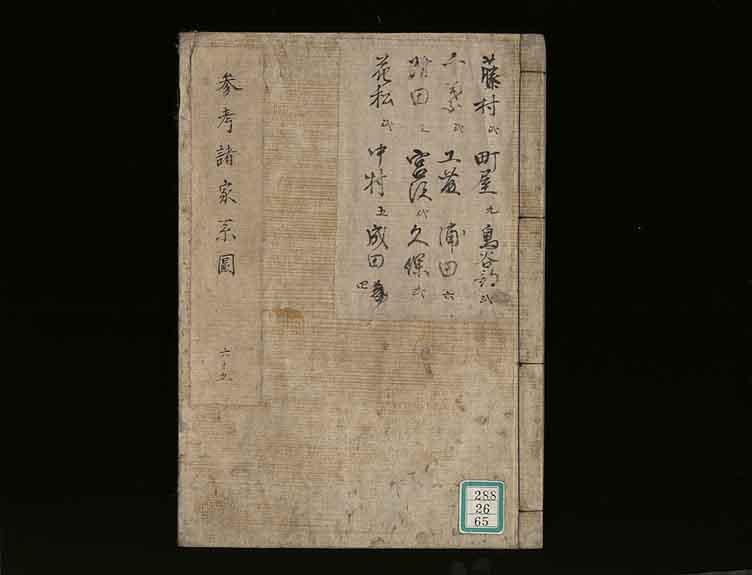 藤村 弐 町屋 九 鳥谷部 弐
千葉 弐 工藤 浦田 六
田 宮沢 弐 久保 弐
花松 弐 中村 五 成田 四
参考諸家系圖
六十五
288
26
65